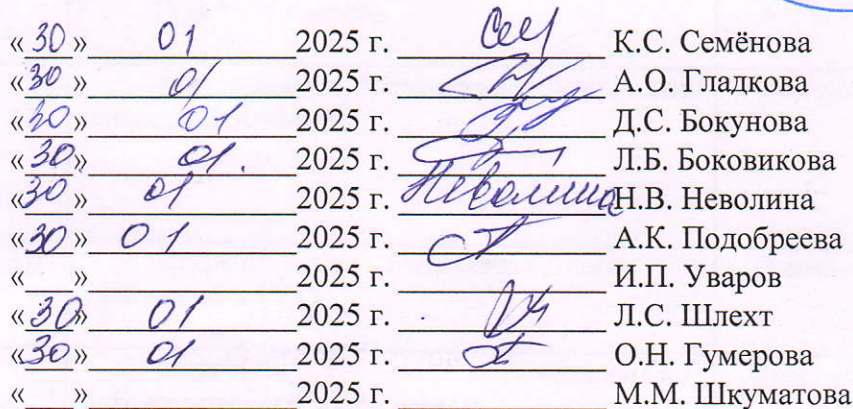 «30» 01 2025 г. К.С. Семёнова
«30» 01 2025 г. А.О. Гладкова
«30» 01 2025 г. Д.С. Бокунова
«30» 01. 2025 г. Л.Б. Боковикова
«30» 01 2025 г. Неволина Н.В. Неволина
«30» 01 2025 г. А.К. Подобреева
«___»____________2025 г. ____________ И.П. Уваров
«30» 01 2025 г. Л.С. Шлехт
«30» 01 2025 г. О.Н. Гумерова
«___»____________2025 г. ____________ М.М. Шкуматова